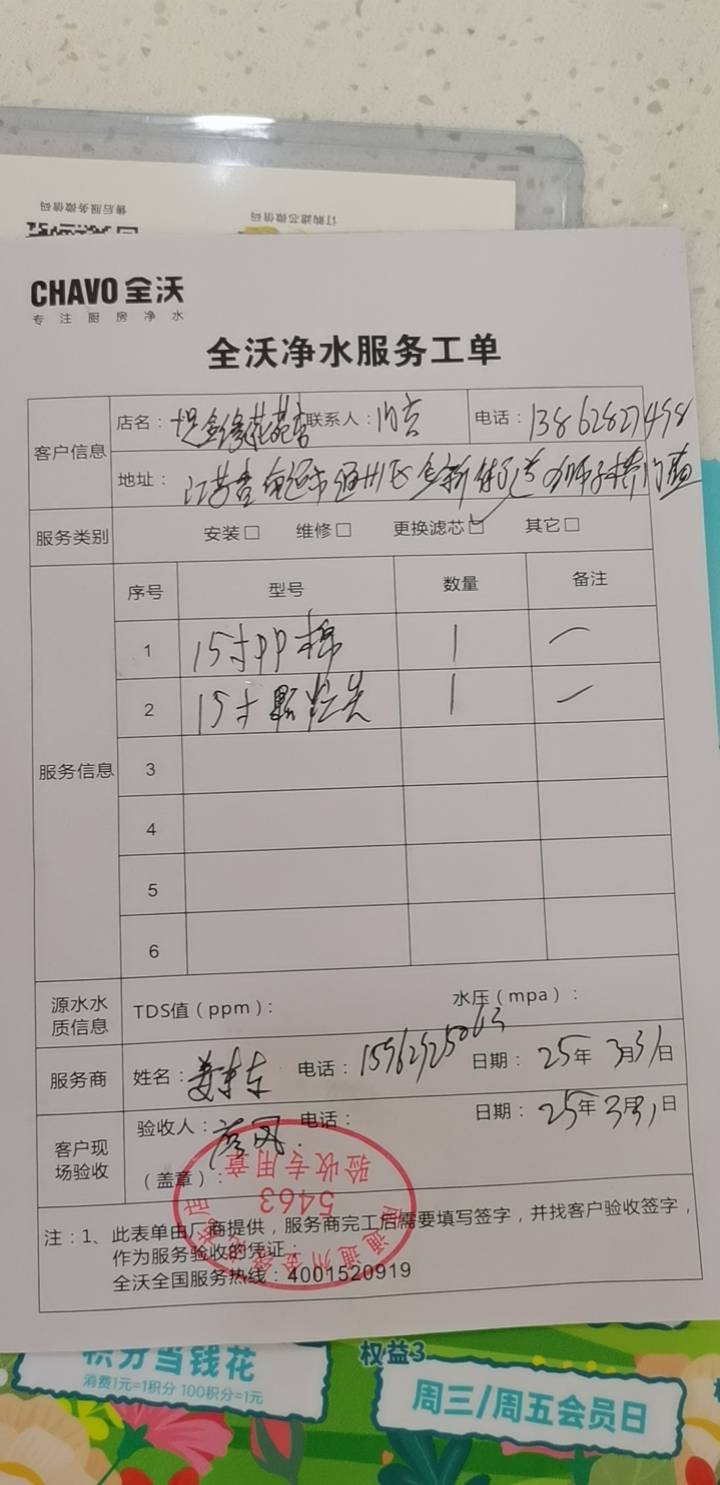 售后服务微信码
订购滤芯微信码
CHAVO 全沃
专注厨房净水
全沃净水服务工单
客户信息
店名：
联系人：
电话：13862827498
地址：江苏省南通市通州区金新街道
服务类别
安装□ 维修□ 更换滤芯□ 其它□
服务信息
序号 型号 数量 备注
1 15寸PP棉 1 一
2 15寸颗粒炭 1 一
3
4
5
6
源水水质信息
TDS值（ppm）： 水压（mpa）：
服务商
姓名： 电话： 日期：25年 3月31日
客户现场验收
验收人： 电话： 日期：25年3月31日
（盖章）：
验收专用章
5463
注：1、此表单由厂商提供，服务商完工后需要填写签字，并找客户验收签字，
作为服务验收的凭证；
全沃全国服务热线：4001520919
积分当钱花
消费1元=1积分 100积分=1元
权益3
周三/周五会员日